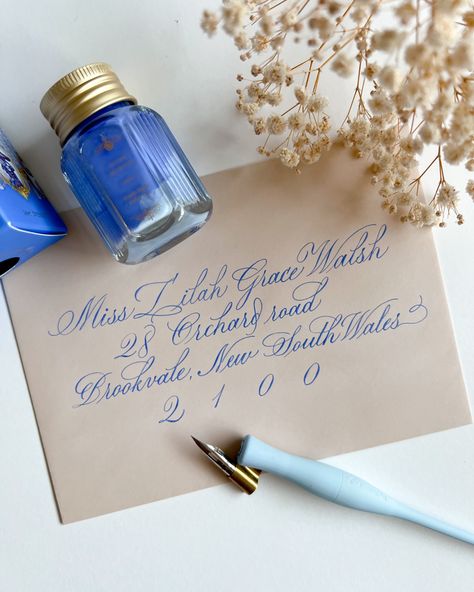 Miss Lilah Grace Walsh
28 Orchard road
Brookvale, New South Wales
2 1 0 0